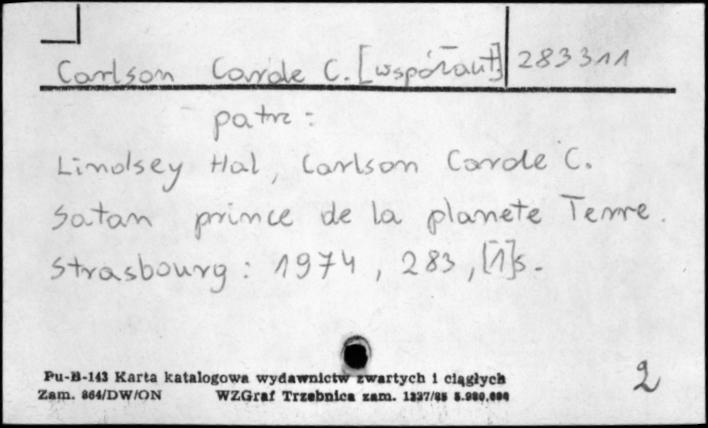 Carlson Carole C. [współaut] 283311
patrz:
Lindsey Hal, Carlson Carole C.
Satan prince de la planete Terre.
Strasbourg: 1974, 283, [1]s.
Pu-B-143 Karta katalogowa wydawnictw zwartych i ciągłych
Zam. 864/DW/ON WZGraf Trzebnica zam. 1327/85 5.980.000
2